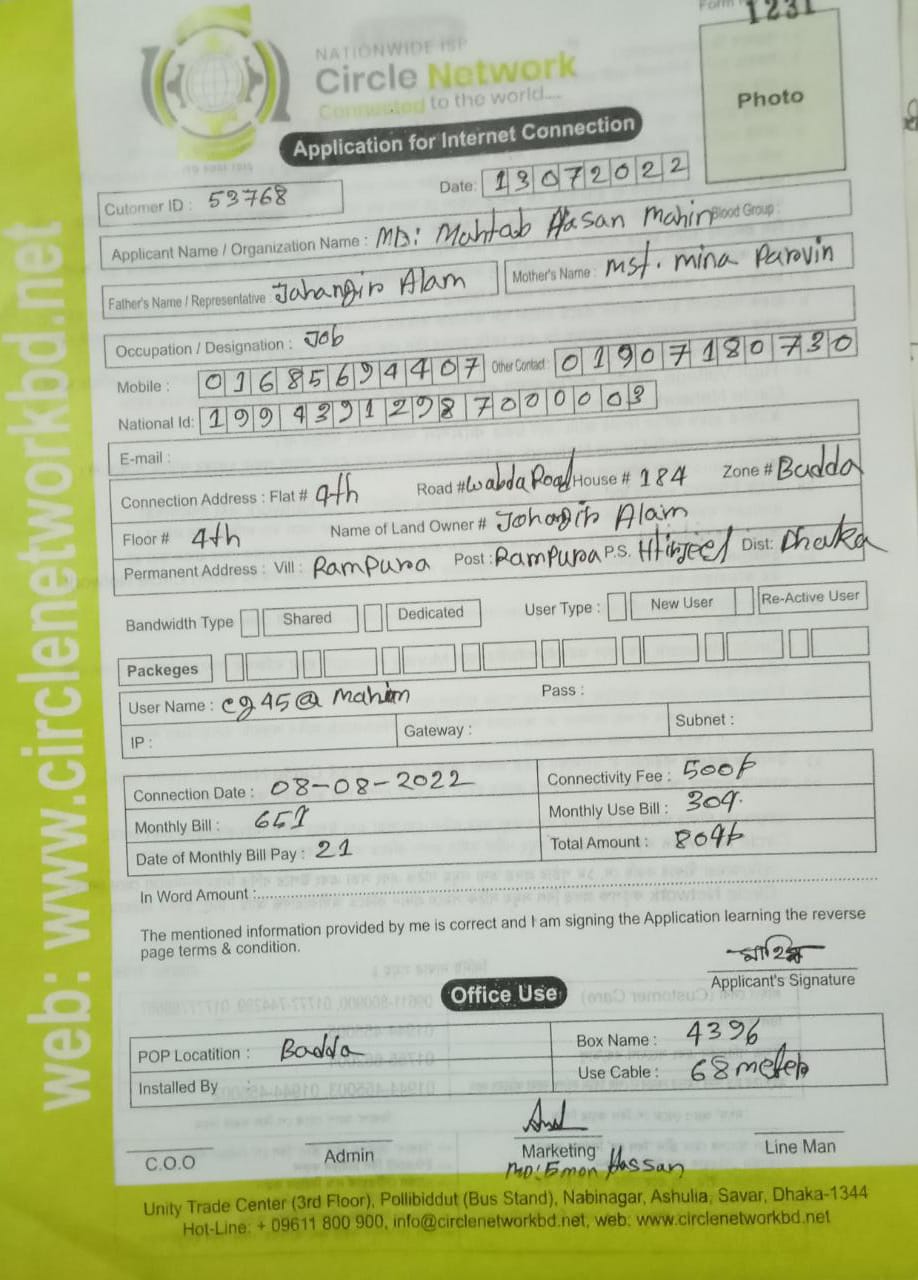 Form
1231
NATIONWIDE ISP
Circle Network
Connected to the world....
Photo
Application for Internet Connection
Date: 13072022
Cutomer ID : 53768
Applicant Name / Organization Name : MD: Mahtab Hasan Mahin Blood Group :
Father's Name / Representative : Jahangir Alam Mother's Name : mst. mina Parovin
Occupation / Designation : Job
Mobile : 01685694407 Other Contact : 01907180730
National Id: 19943912987000003
E-mail :
Connection Address : Flat # 4th Road # Wabda Road House # 184 Zone # Badda
Floor # 4th Name of Land Owner # Johagir Alam
Permanent Address : Vill : Rampura Post : Rampura P.S. Dist: Dhaka
Bandwidth Type Shared Dedicated User Type : New User Re-Active User
Packeges
User Name : cg45@mahim Pass :
IP : Gateway : Subnet :
Connection Date : 08-08-2022 Connectivity Fee : 500৳
Monthly Bill : 651 Monthly Use Bill : 304.
Date of Monthly Bill Pay : 21 Total Amount : 804৳
In Word Amount :
The mentioned information provided by me is correct and I am signing the Application learning the reverse
page terms & condition.
Applicant's Signature
Office Use
POP Locatition : Badda Box Name : 4396
Installed By : Use Cable : 68 meter
C.O.O Admin Marketing Line Man
MD: Emon Hassan
Unity Trade Center (3rd Floor), Pollibiddut (Bus Stand), Nabinagar, Ashulia, Savar, Dhaka-1344
Hot-Line: + 09611 800 900, info@circlenetworkbd.net, web: www.circlenetworkbd.net
web: www.circlenetworkbd.net